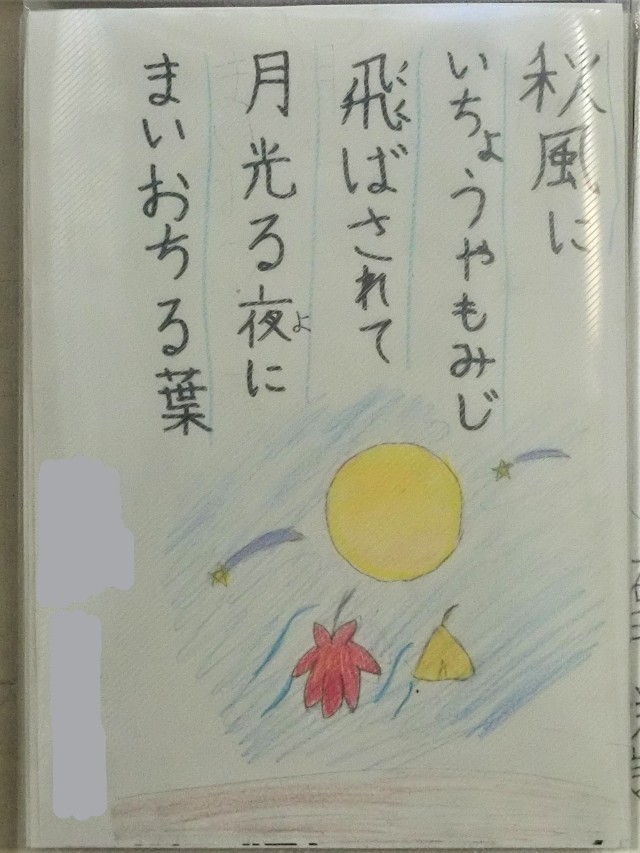 秋風に
いちょうやもみじ
飛ばされて
月光る夜に
よ
まいおちる葉